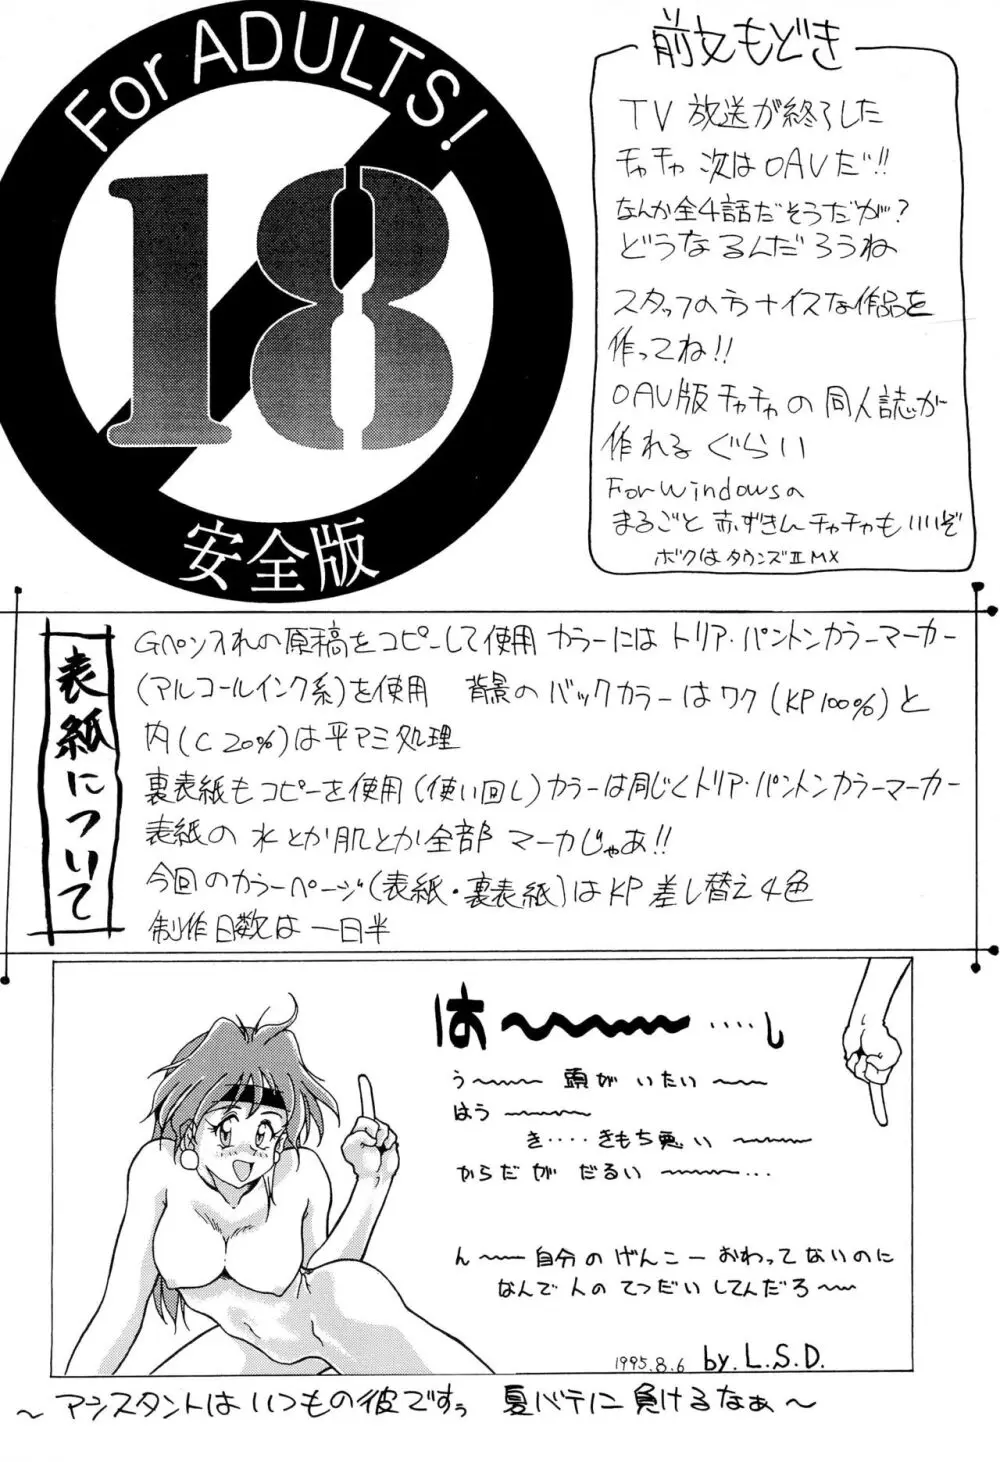 For ADULTS!
18
安全版
前文もどき
TV 放送が終了した
チャチャ 次はOAVだ!!
なんか全4話だそうだが?
どうなるんだろうね
スタッフの方ナイスな作品を
作ってね!!
OAV版チャチャの同人誌が
作れるぐらい
For Windowsの
まるごと赤ずきんチャチャもいいぞ
ボクはタウンズⅡMX
表紙について
Gペン入れの原稿をコピーして使用 カラーにはトリア・パントンカラーマーカー
(アルコールインク系)を使用 背景のバックカラーはワク(KP100%)と
内(C20%)は平アミ処理
裏表紙もコピーを使用(使い回し)カラーは同じくトリア・パントンカラーマーカー
表紙の水とか肌とか全部マーカじゃあ!!
今回のカラーページ(表紙・裏表紙)はKP差し替え4色
制作日数は一日半
は〜〜〜‥‥し
う〜〜 頭がいたい〜〜
はう〜〜〜
き‥‥きもち悪い〜〜〜
からだがだるい〜〜〜‥‥
ん〜〜自分のげんこーおわってないのに
なんで人のてつだいしてんだろ〜〜
1995.8.6 by.L.S.D.
〜アシスタントはいつもの彼ですぅ 夏バテに負けるなぁ〜